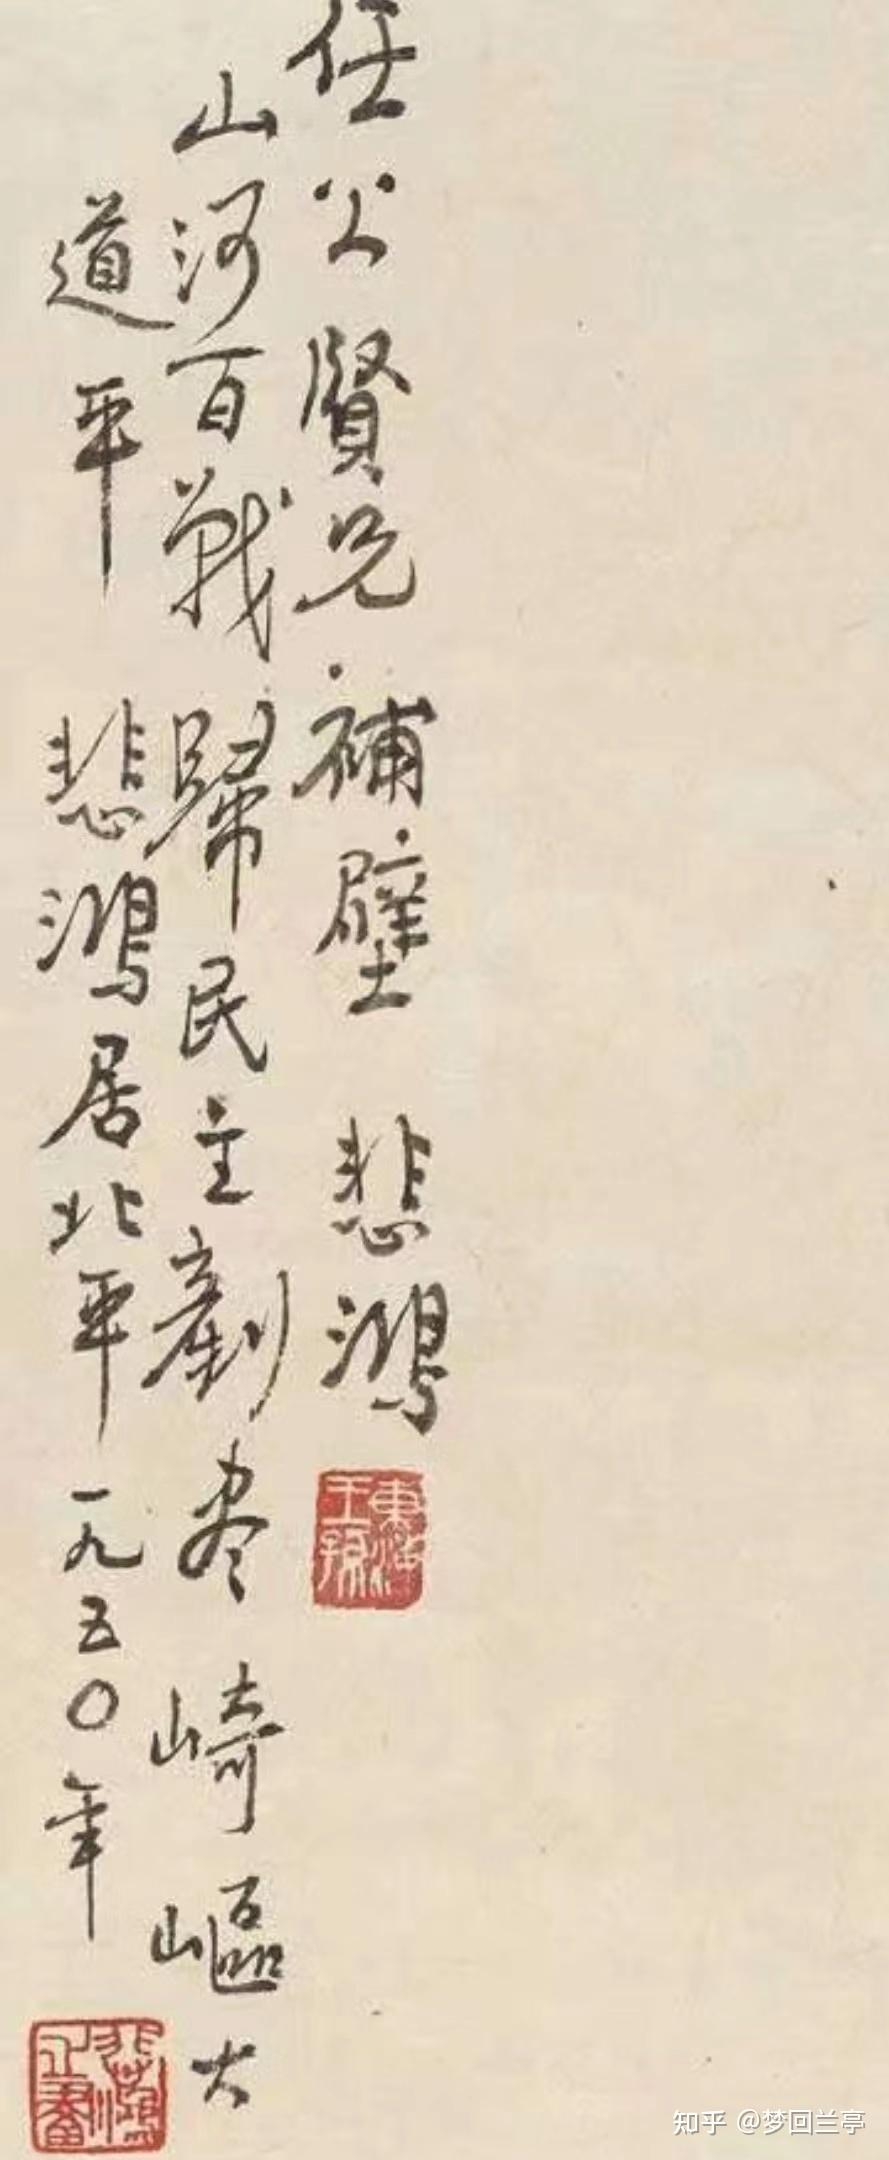 任公賢兄補壁 悲鴻
山河百戰歸民主剷尽崎嶇大
道平 悲鴻居北平一九五〇年
東海王孫
悲鴻
知乎 @梦回兰亭